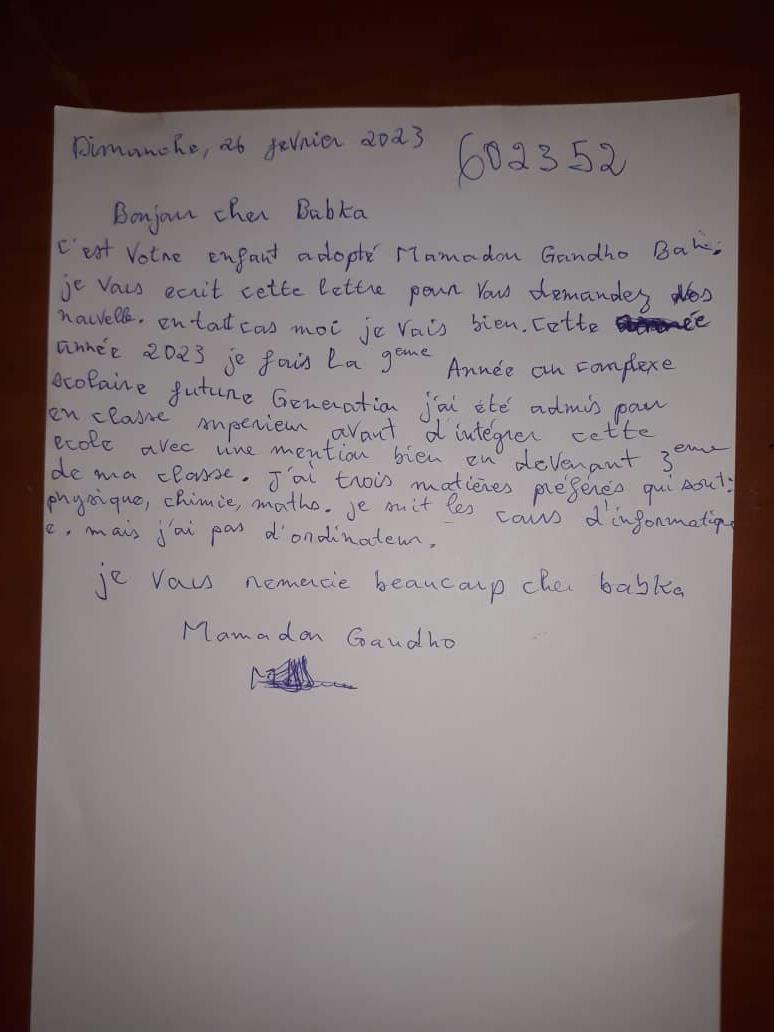 Dimanche, 26 fevrier 2023 602352
Bonjour cher Babka
C'est Votre enfant adopté Mamadou Gandho Bah.
je Vous ecrit cette lettre pour Vous demandez Vos
nouvelle. en tout cas moi je vais bien. Cette
année 2023 je fais la 9eme Année au complexe
scolaire future Generation j'ai été admis pour
en classe superieur avant d'intégrer cette
ecole avec une mention bien en devenant 3eme
de ma classe. J'ai trois matières préférés qui sont:
physique, chimie, maths. je suit les cours d'informatiqu
e. mais j'ai pas d'ordinateur.
je Vous remercie beaucoup cher babka
Mamadou Gandho